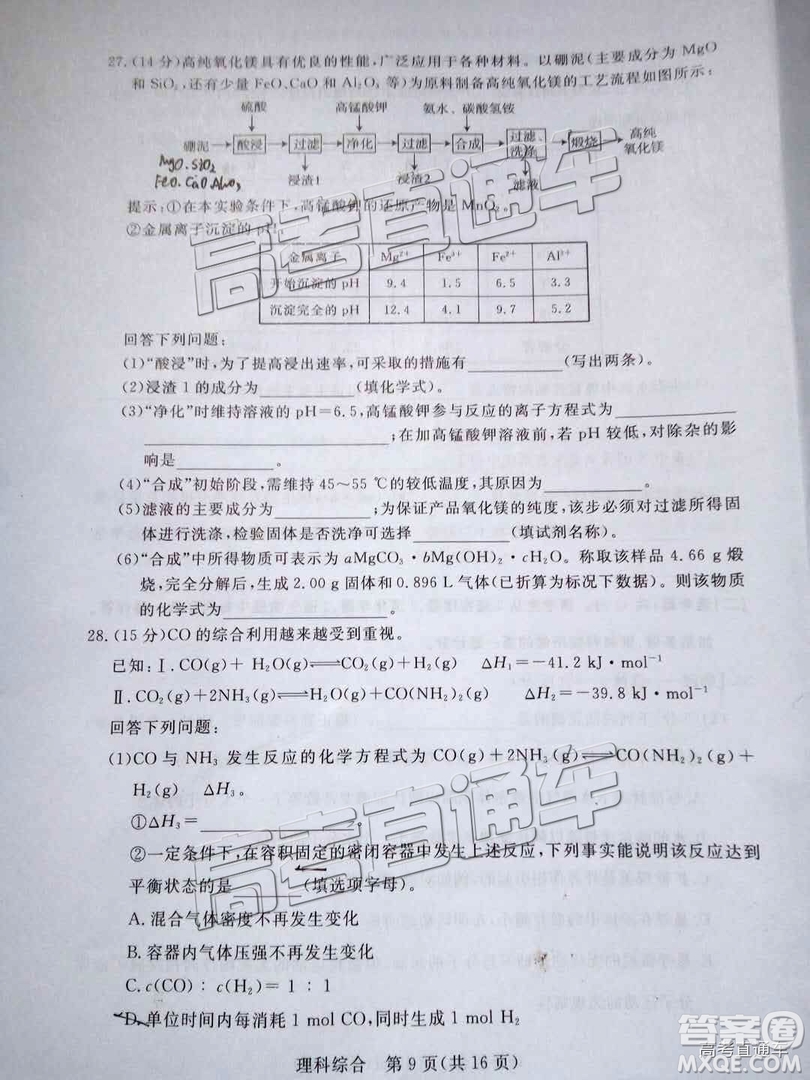 27.(14分)高纯氧化镁具有优良的性能,广泛应用于各种材料。以硼泥(主要成分为 MgO
和 SiO₂,还有少量 FeO、CaO 和 Al₂O₃ 等)为原料制备高纯氧化镁的工艺流程如图所示:
硫酸 高锰酸钾 氨水、碳酸氢铵
硼泥 酸浸 过滤 净化 过滤 合成 过滤、洗涤 煅烧 高纯氧化镁
浸渣1 浸渣2 滤液
MgO.SiO₂
FeO.CaO
提示:①在本实验条件下,高锰酸钾的还原产物是 MnO₂。
②金属离子沉淀的 pH:
金属离子 Mg²⁺ Fe³⁺ Fe²⁺ Al³⁺
开始沉淀的 pH 9.4 1.5 6.5 3.3
沉淀完全的 pH 12.4 4.1 9.7 5.2
回答下列问题:
(1)“酸浸”时,为了提高浸出速率,可采取的措施有____________(写出两条)。
(2)浸渣 1 的成分为____________(填化学式)。
(3)“净化”时维持溶液的 pH=6.5,高锰酸钾参与反应的离子方程式为____________
____________;在加高锰酸钾溶液前,若 pH 较低,对除杂的影
响是____________。
(4)“合成”初始阶段,需维持 45~55 ℃的较低温度,其原因为____________。
(5)滤液的主要成分为____________;为保证产品氧化镁的纯度,该步必须对过滤所得固
体进行洗涤,检验固体是否洗净可选择____________(填试剂名称)。
(6)“合成”中所得物质可表示为 aMgCO₃·bMg(OH)₂·cH₂O。称取该样品 4.66 g 煅
烧,完全分解后,生成 2.00 g 固体和 0.896 L 气体(已折算为标况下数据)。则该物质
的化学式为____________。
28.(15分)CO 的综合利用越来越受到重视。
已知:Ⅰ.CO(g)+H₂O(g)⇌CO₂(g)+H₂(g) ΔH₁=−41.2 kJ·mol⁻¹
Ⅱ.CO₂(g)+2NH₃(g)⇌H₂O(g)+CO(NH₂)₂(g) ΔH₂=−39.8 kJ·mol⁻¹
回答下列问题:
(1)CO 与 NH₃ 发生反应的化学方程式为 CO(g)+2NH₃(g)⇌CO(NH₂)₂(g)+
H₂(g) ΔH₃。
①ΔH₃=____________。
②一定条件下,在容积固定的密闭容器中发生上述反应,下列事实能说明该反应达到
平衡状态的是________(填选项字母)。
A.混合气体密度不再发生变化
B.容器内气体压强不再发生变化
C.c(CO):c(H₂)=1:1
D.单位时间内每消耗 1 mol CO,同时生成 1 mol H₂
理科综合 第 9 页(共 16 页)
高考直通车
高考直通车
答案圈
高考直通车
MXQE.COM